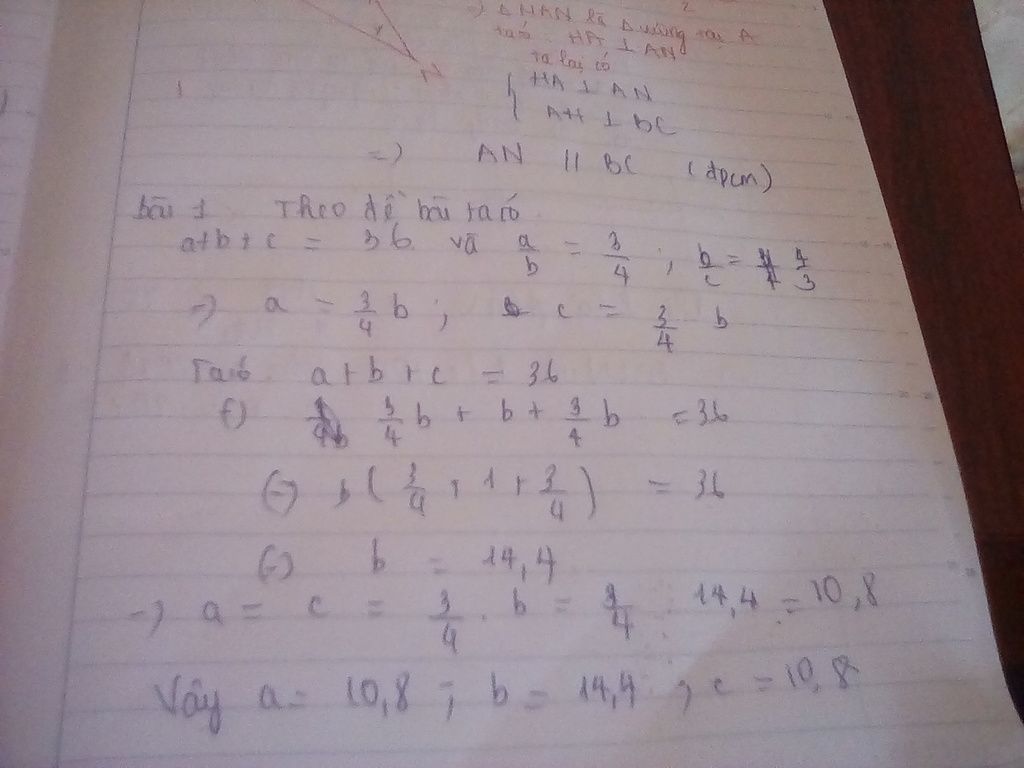 N
=> Δ HAN là Δ vuông tại A
ta có HA ⊥ AN
ta lại có
{ HA ⊥ AN
AH ⊥ BC
=> AN // BC (đpcm)
bài 1 Theo đề bài ta có
a+b+c = 36 và a/b = 3/4 ; b/c = 4/3
=> a = 3/4 b ; c = 3/4 b
Ta có a+b+c = 36
(=) 3/4 b + b + 3/4 b = 36
(=) b ( 3/4 + 1 + 3/4 ) = 36
(=) b = 14,4
=> a = c = 3/4 . b = 3/4 . 14,4 = 10,8
Vậy a = 10,8 ; b = 14,4 ; c = 10,8